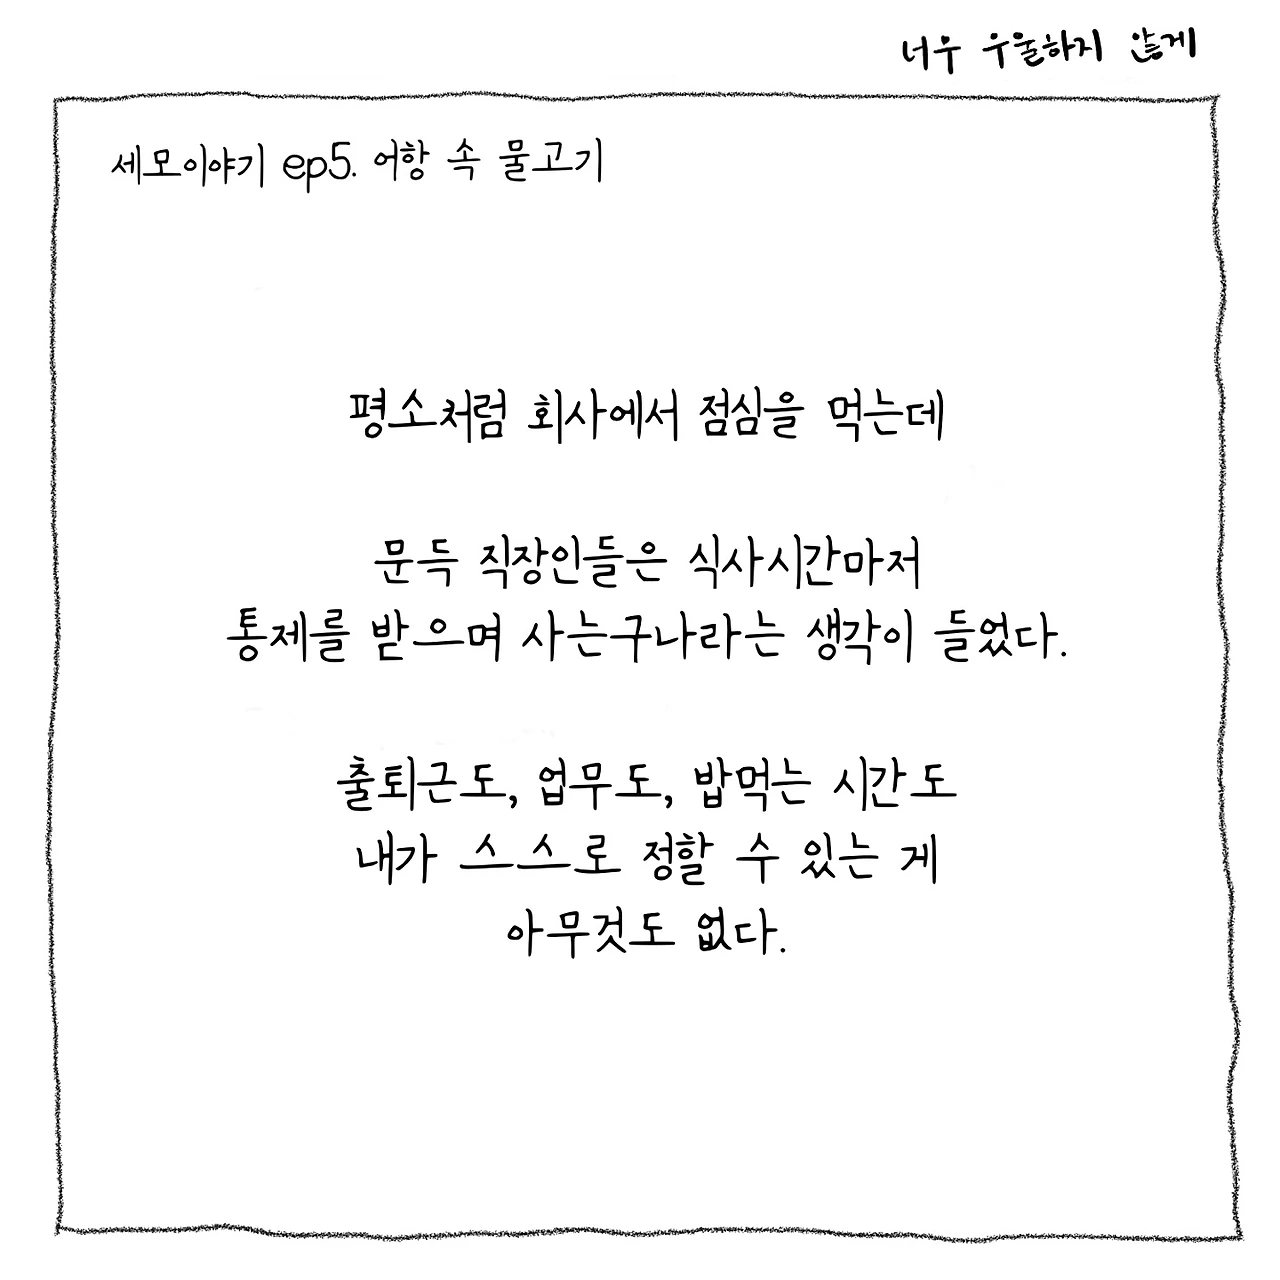 너우 우울하지 않게
세모이야기 ep5. 어항 속 물고기
평소처럼 회사에서 점심을 먹는데
문득 직장인들은 식사시간마저
통제를 받으며 사는구나라는 생각이 들었다.
출퇴근도, 업무도, 밥먹는 시간도
내가 스스로 정할 수 있는 게
아무것도 없다.